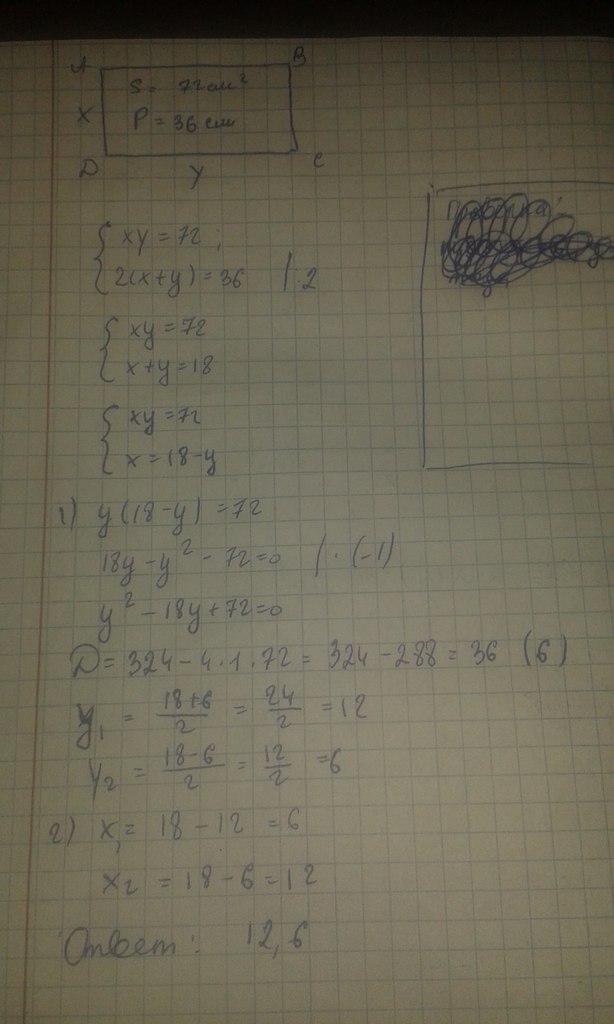 A B
S = 72 см²
X P = 36 см
D Y C
{ xy = 72 ;
{ 2(x+y) = 36 /:2
{ xy = 72
{ x+y = 18
{ xy = 72
{ x = 18-y
1) y(18-y) = 72
18y - y² - 72 = 0 / · (-1)
y² - 18y + 72 = 0
D = 324 - 4 · 1 · 72 = 324 - 288 = 36 (6)
y₁ = 18+6/2 = 24/2 = 12
y₂ = 18-6/2 = 12/2 = 6
2) x₁ = 18 - 12 = 6
x₂ = 18 - 6 = 12
Ответ: 12, 6